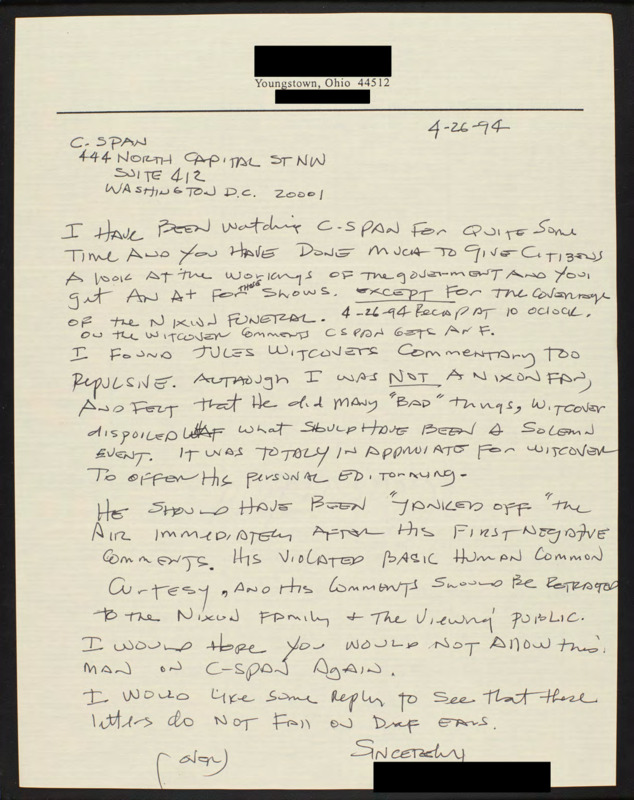 Youngstown, Ohio 44512
4-26-94
C-SPAN
444 NORTH CAPITAL ST NW
SUITE 412
WASHINGTON D.C. 20001
I HAVE BEEN WATCHING C-SPAN FOR QUITE SOME
TIME AND YOU HAVE DONE MUCH TO GIVE CITIZENS
A LOOK AT THE WORKINGS OF THE GOVERNMENT AND YOU
GET AN A+ FOR THOSE SHOWS. EXCEPT FOR THE COVERAGE
OF THE NIXON FUNERAL. 4-26-94 RECAP AT 10 OCLOCK.
ON THE WITCOVER COMMENTS CSPAN GETS AN F.
I FOUND JULES WITCOVERS COMMENTARY TOO
REPULSIVE. ALTHOUGH I WAS NOT A NIXON FAN,
AND FELT THAT HE DID MANY "BAD" THINGS, WITCOVER
DISPOILED WHAT SHOULD HAVE BEEN A SOLEMN
EVENT. IT WAS TOTALY IN APPROIATE FOR WITCOVER
TO OFFER HIS PERSONAL EDITORALING.
HE SHOULD HAVE BEEN "YANKED OFF" THE
AIR IMMEDIATELY AFTER HIS FIRST NEGATIVE
COMMENTS. HIS VIOLATED BASIC HUMAN COMMON
CURTESY, AND HIS COMMENTS SHOULD BE RETRACTED
TO THE NIXON FAMILY & THE VIEWING PUBLIC.
I WOULD HOPE YOU WOULD NOT ALLOW THIS
MAN ON C-SPAN AGAIN.
I WOULD LIKE SOME REPLY TO SEE THAT THESE
LETTERS DO NOT FALL ON DEAF EARS.
(OVER) SINCERELY